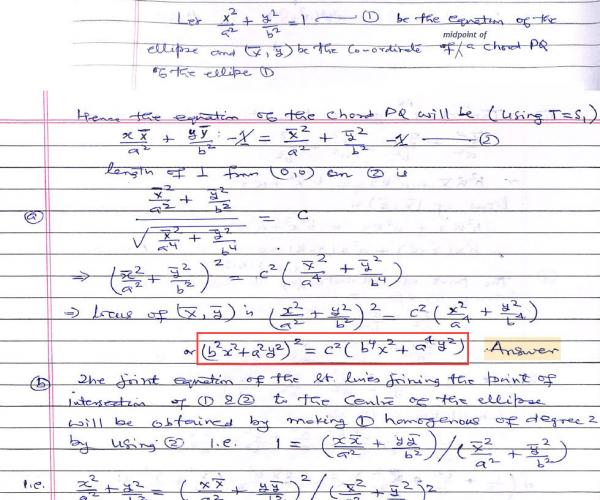 Let x²/a² + y²/b² = 1 — ① be the equation of the
ellipse and (x̄, ȳ) be the co-ordinate of midpoint of a chord PQ
of the ellipe ①
Hence the equation of the chord PQ will be (using T=S₁)
x x̄/a² + y ȳ/b² - 1 = x̄²/a² + ȳ²/b² - 1 — ②
length of ⊥ from (0,0) on ② is
(a) (x̄²/a² + ȳ²/b²) / √(x̄²/a⁴ + ȳ²/b⁴) = c
⇒ (x̄²/a² + ȳ²/b²)² = c² (x̄²/a⁴ + ȳ²/b⁴)
⇒ locus of (x̄, ȳ) is (x²/a² + y²/b²)² = c² (x²/a⁴ + y²/b⁴)
or (b²x²+a²y²)² = c² (b⁴x² + a⁴y²) Answer
(b) The joint equation of the st. lines joining the point of
intersection of ① & ② to the centre of the ellipse
will be obtained by making ① homogenous of degree 2
by using ② i.e. 1 = (x x̄/a² + y ȳ/b²) / (x̄²/a² + ȳ²/b²)
i.e. x²/a² + y²/b² = (x x̄/a² + y ȳ/b²)² / (x̄²/a² + ȳ²/b²)²